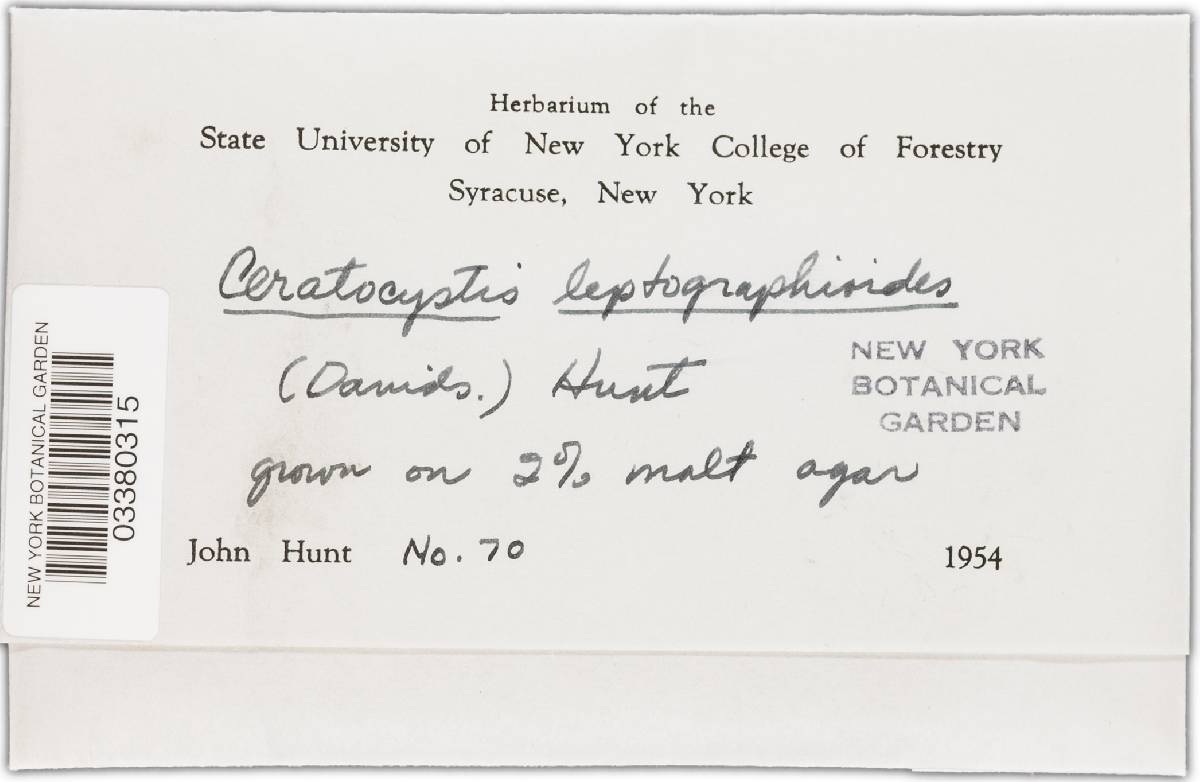 Herbarium of the
State University of New York College of Forestry
Syracuse, New York
Ceratocystis leptographioides
(Davids.) Hunt
NEW YORK
BOTANICAL
GARDEN
grown on 2% malt agar
John Hunt No. 70 1954
NEW YORK BOTANICAL GARDEN
03380315